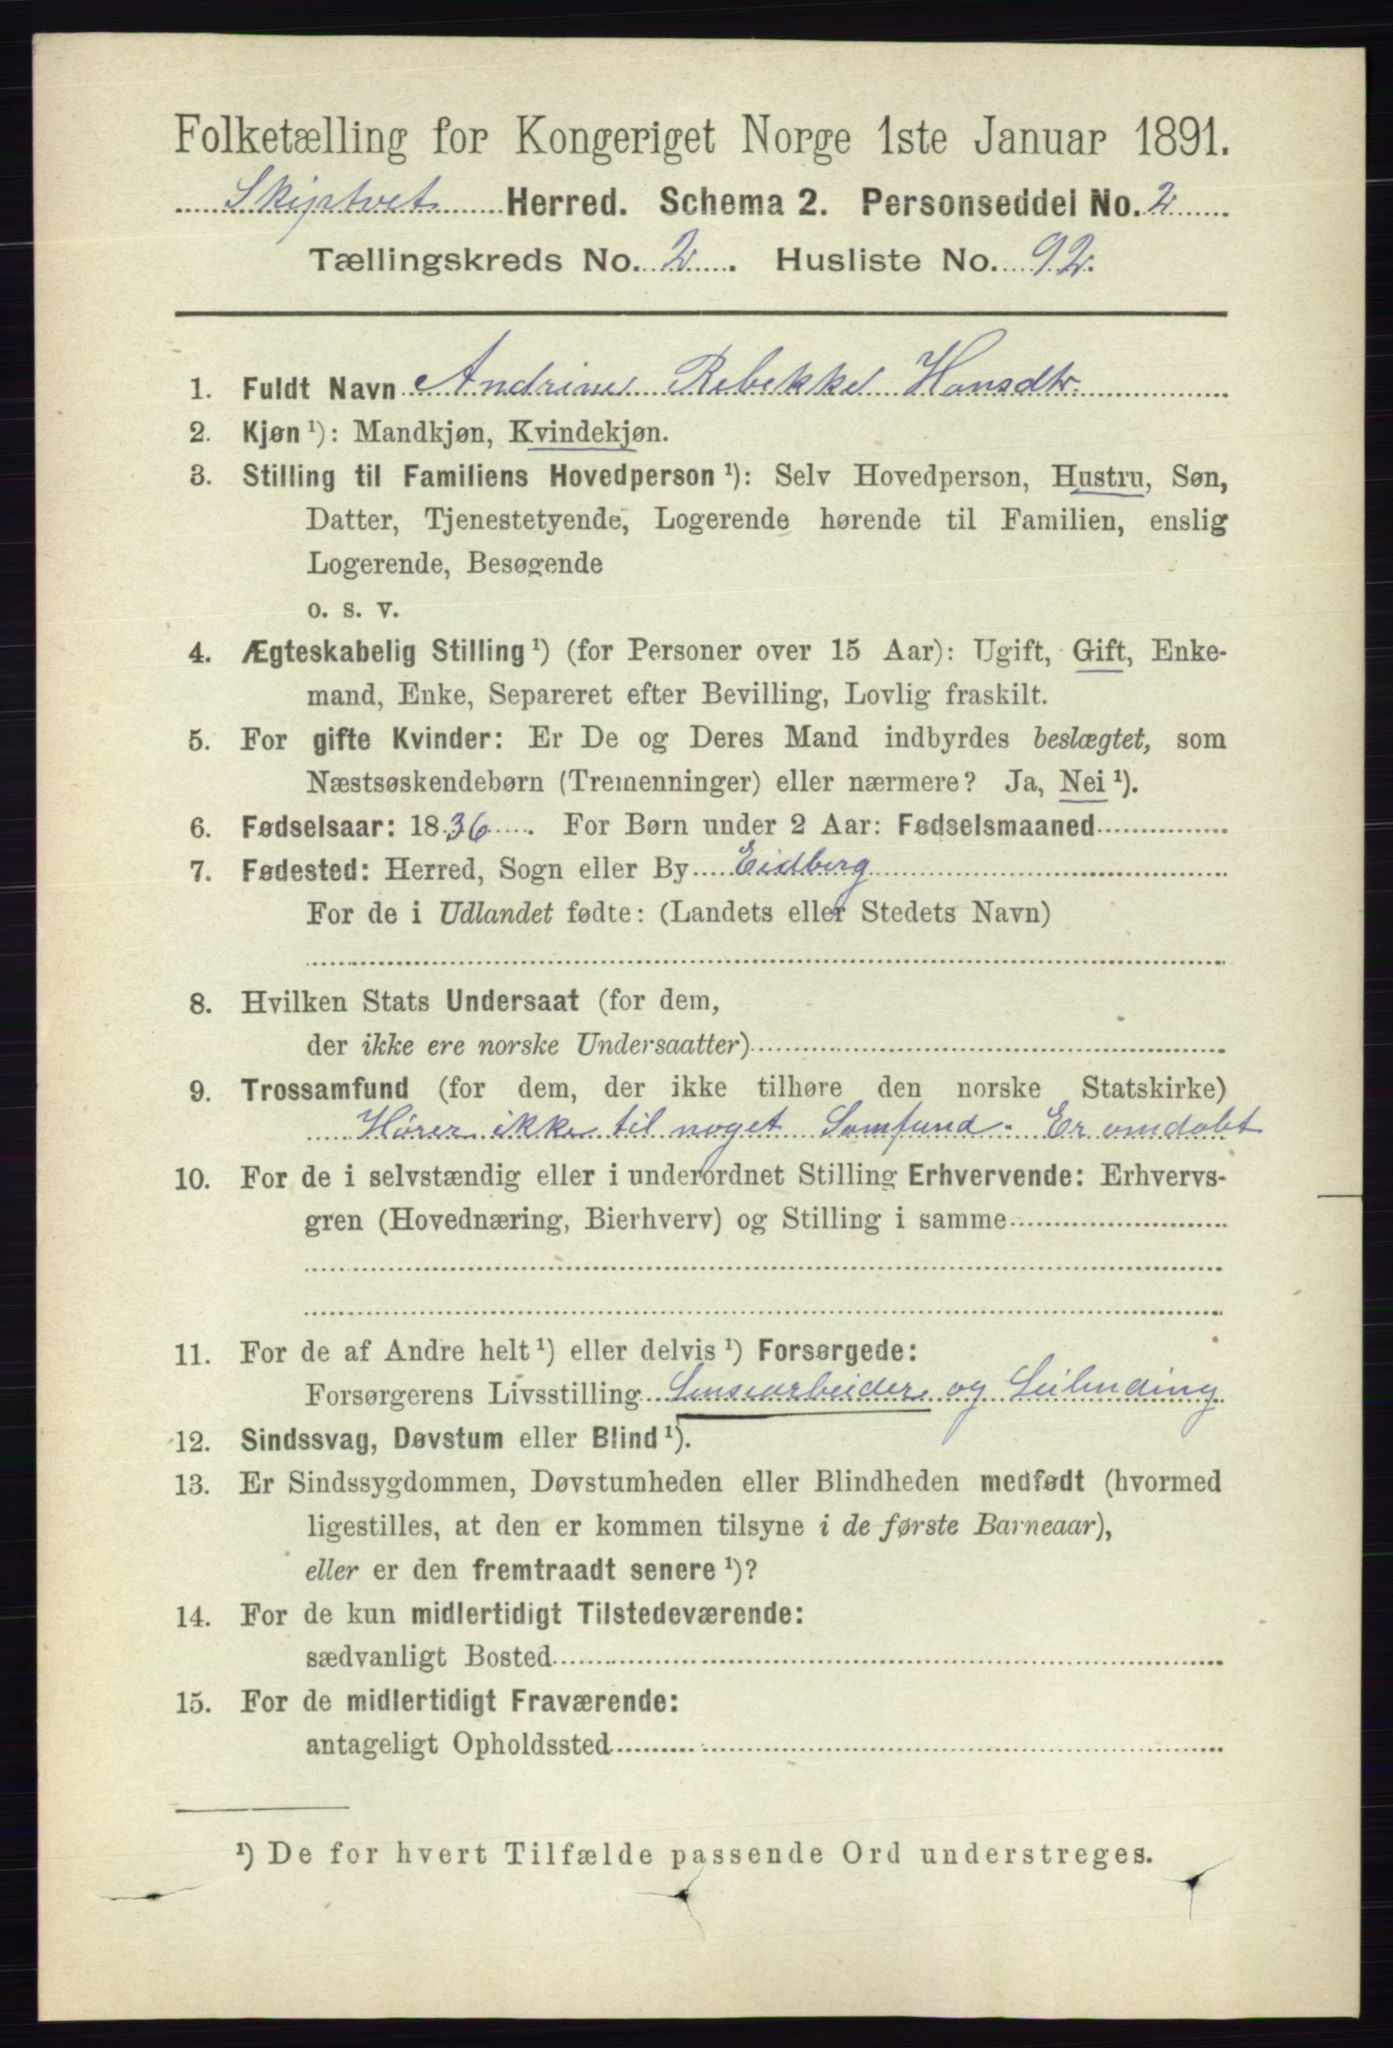 Folketælling for Kongeriget Norge 1ste Januar 1891.
Skiptvet Herred. Schema 2. Personseddel No. 2
Tællingskreds No. 2. Husliste No. 92.
1. Fuldt Navn Andrine Rebekke Hansdtr.
2. Kjøn ¹): Mandkjøn, Kvindekjøn.
3. Stilling til Familiens Hovedperson ¹): Selv Hovedperson, Hustru, Søn,
Datter, Tjenestetyende, Logerende hørende til Familien, enslig
Logerende, Besøgende
o. s. v.
4. Ægteskabelig Stilling ¹) (for Personer over 15 Aar): Ugift, Gift, Enke-
mand, Enke, Separeret efter Bevilling, Lovlig fraskilt.
5. For gifte Kvinder: Er De og Deres Mand indbyrdes beslægtet, som
Næstsøskendebørn (Tremenninger) eller nærmere? Ja, Nei ¹).
6. Fødselsaar: 1836. For Børn under 2 Aar: Fødselsmaaned
7. Fødested: Herred, Sogn eller By Eidberg
For de i Udlandet fødte: (Landets eller Stedets Navn)
8. Hvilken Stats Undersaat (for dem,
der ikke ere norske Undersaatter)
9. Trossamfund (for dem, der ikke tilhøre den norske Statskirke)
Hører ikke til noget Samfund. Er omdøbt
10. For de i selvstændig eller i underordnet Stilling Erhvervende: Erhvervs-
gren (Hovednæring, Bierhverv) og Stilling i samme
11. For de af Andre helt ¹) eller delvis ¹) Forsørgede:
Forsørgerens Livsstilling Lensearbeider og Leilending
12. Sindssvag, Døvstum eller Blind ¹).
13. Er Sindssygdommen, Døvstumheden eller Blindheden medfødt (hvormed
ligestilles, at den er kommen tilsyne i de første Barneaar),
eller er den fremtraadt senere ¹)?
14. For de kun midlertidigt Tilstedeværende:
sædvanligt Bosted
15. For de midlertidigt Fraværende:
antageligt Opholdssted
¹) De for hvert Tilfælde passende Ord understreges.